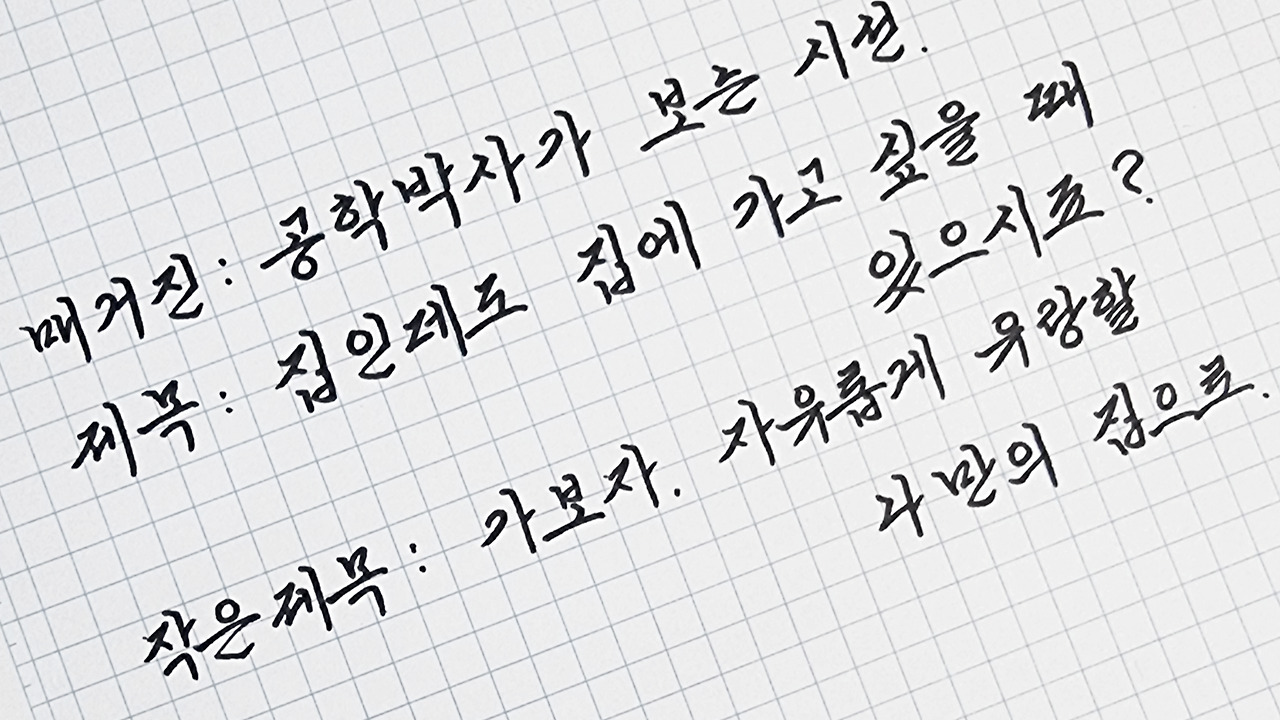 매거진: 공학박사가 보는 시선.
제목: 집인데도 집에 가고 싶을 때
있으시죠?
작은제목: 가보자. 자유롭게 유랑할
나만의 집으로.